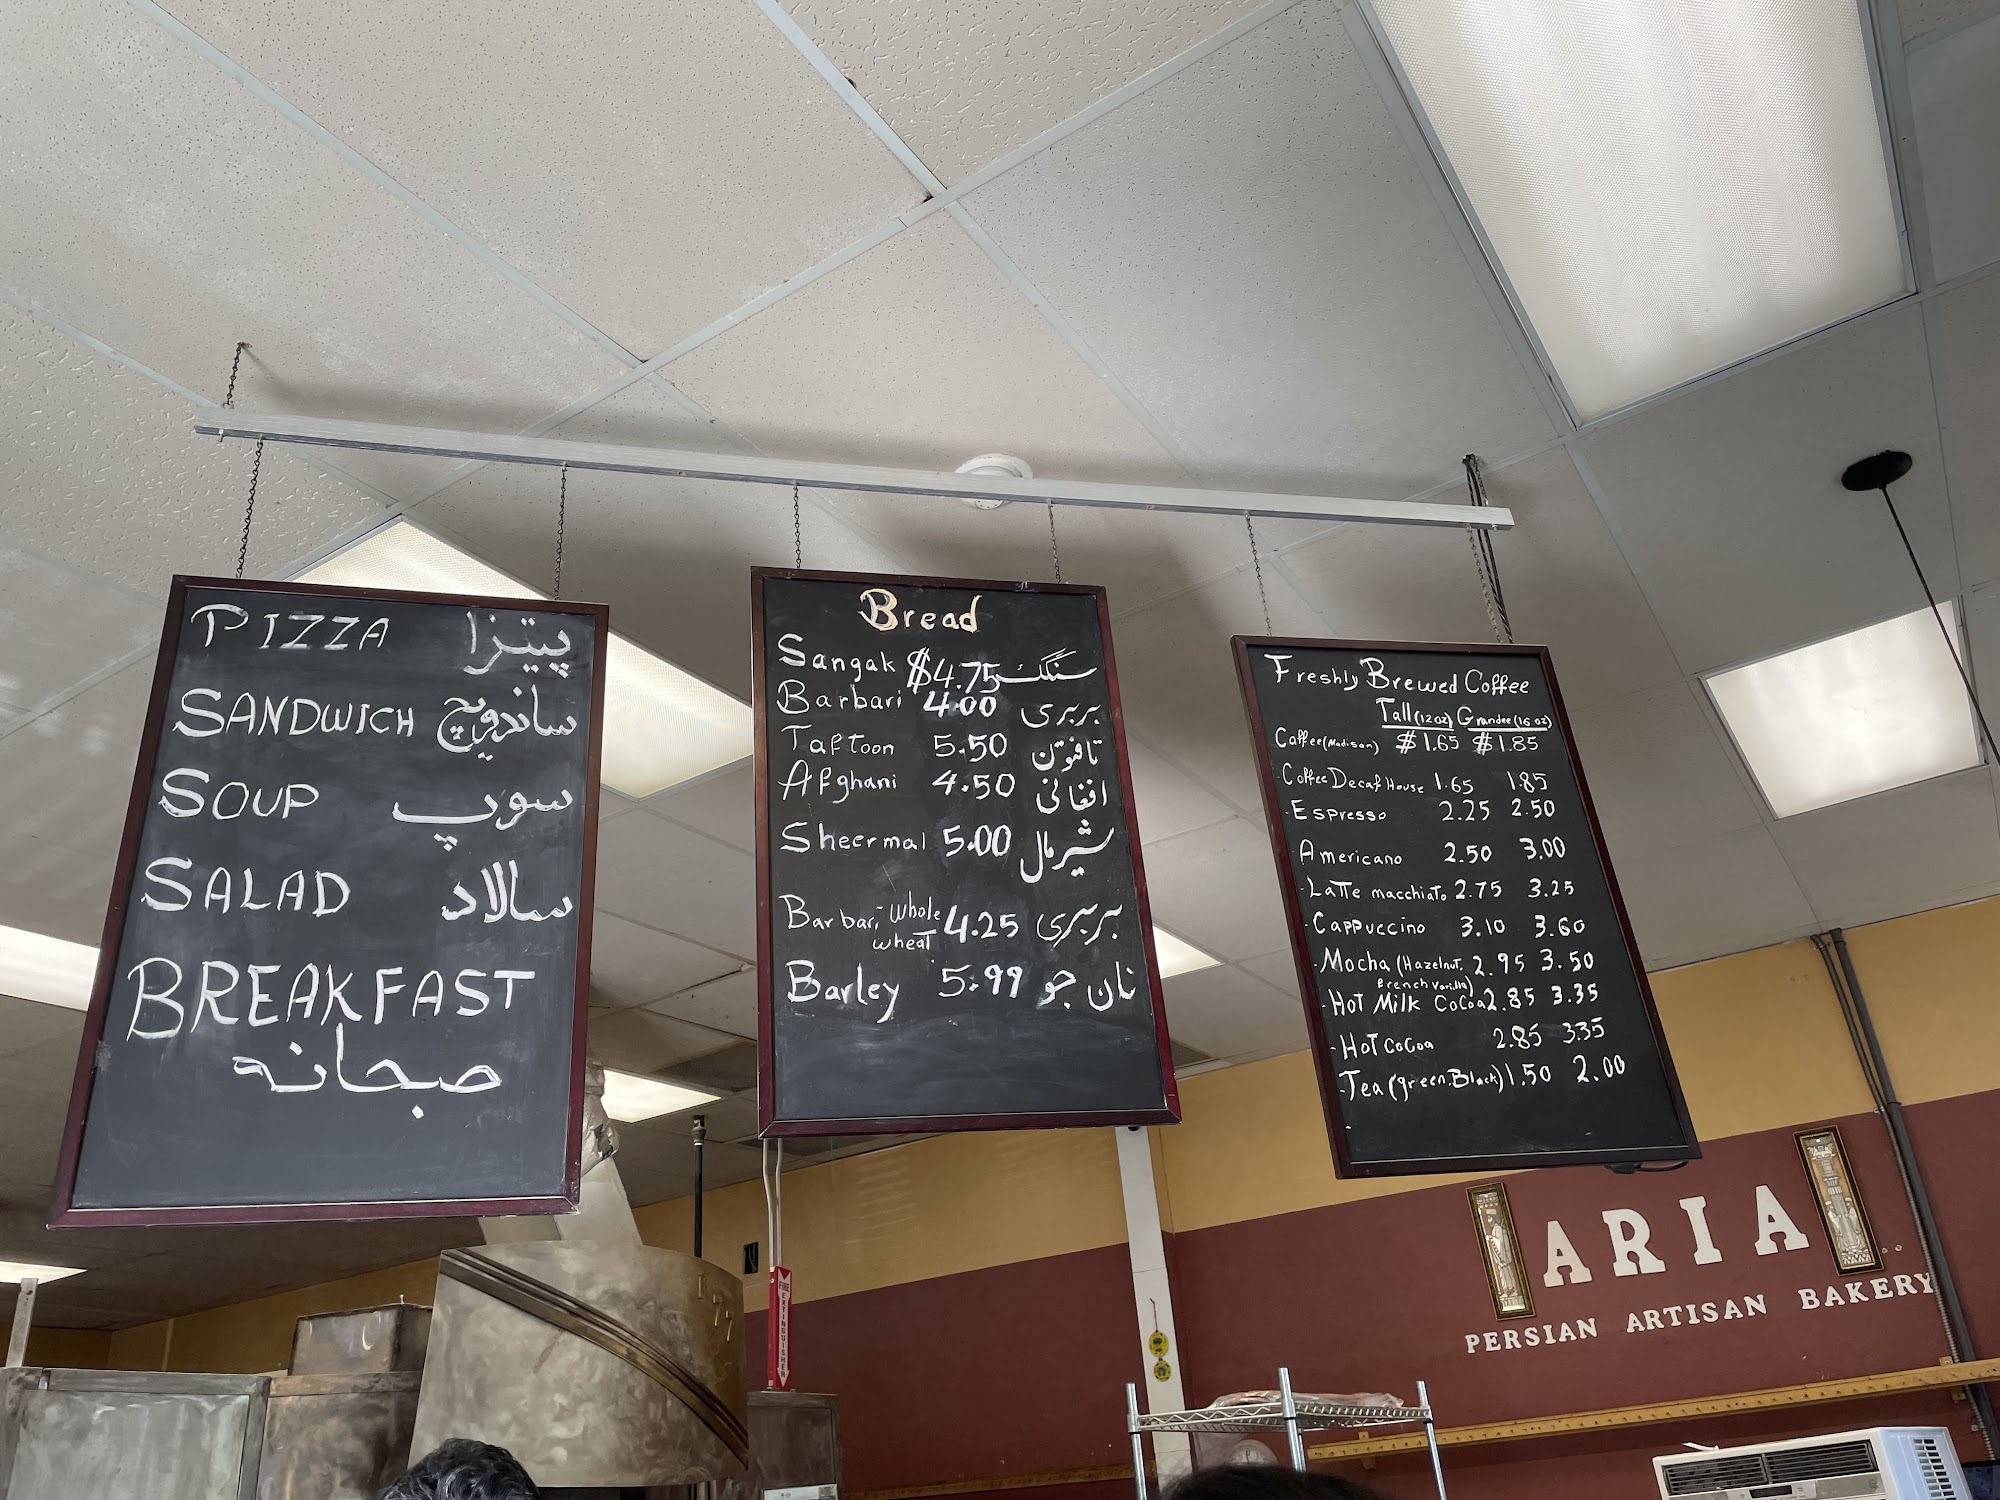 PIZZA پیتزا
SANDWICH ساندویچ
SOUP سوپ
SALAD سالاد
BREAKFAST
صبحانه
Bread
Sangak $4.75 سنگک
Barbari 4.00 بربری
Taftoon 5.50 تافتون
Afghani 4.50 افغانی
Sheermal 5.00 شیرمال
Barbari-Whole wheat 4.25 بربری
Barley 5.99 نان جو
Freshly Brewed Coffee
Tall (12 oz) Grandee (16 oz)
Caffee (Madisan) $1.65 $1.85
Coffee Decaf House 1.65 1.85
-Espresso 2.25 2.50
-Americano 2.50 3.00
-Latte macchiato 2.75 3.25
-Cappuccino 3.10 3.60
-Mocha (Hazelnut, 2.95 3.50
French Vanilla)
-Hot Milk Cocoa 2.85 3.35
-Hot Cocoa 2.85 3.35
-Tea (green, Black) 1.50 2.00
ARIA
PERSIAN ARTISAN BAKERY
FIRE EXTINGUISHER